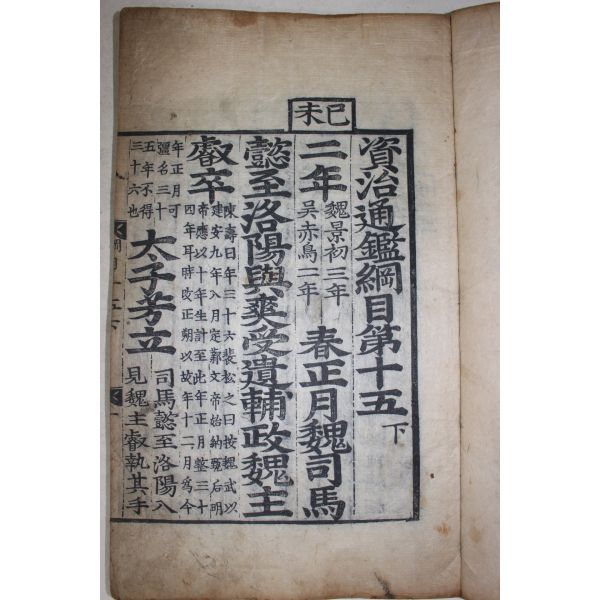 巳未
資治通鑑綱目第十五下
二年
魏景初三年
吳赤烏二年
春正月魏司馬
懿至洛陽與爽受遺輔政魏主
叡卒
陳壽曰年三十六裴松之曰按魏武以
建安九年八月定鄴文帝始納甄后明
帝應以十年生計至此年正月整三十
四年耳時改正朔以故年十二月為今
年正月可
彊名三十
五年不得
三十六也
太子芳立
司馬懿至洛陽入
見魏主叡執其手